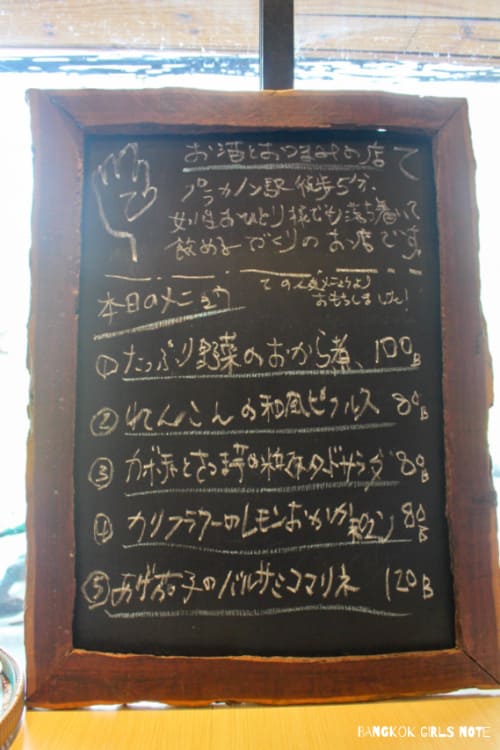 お酒とおつまみの店 て
プラカノン駅 徒歩5分、
女性おひとり様でも落ち着いて
飲める づくりのお店です。
て
本日のメニュウ
ての人気メニューより
おもちしました!
① たっぷり野菜のおから煮、100B
② れんこんの和風ピクルス 80B
③ カボチャとさつま芋の粒マスタードサラダ 80B
④ カリフラワーのレモンおかか和え 80B
⑤ あげ茄子のバルサミコマリネ 120B
BANGKOK GIRLS NOTE